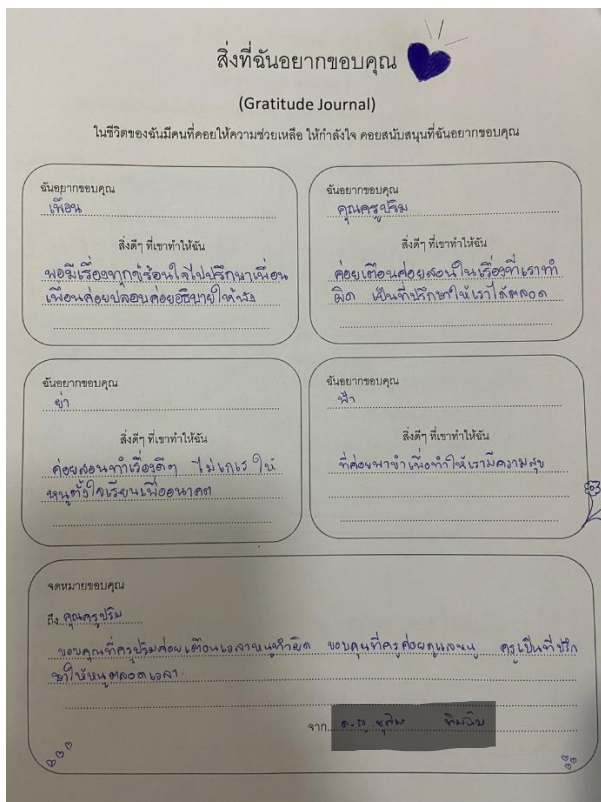 สิ่งที่ฉันอยากขอบคุณ
(Gratitude Journal)
ในชีวิตของฉันมีคนที่คอยให้ความช่วยเหลือ ให้กำลังใจ คอยสนับสนุนที่ฉันอยากขอบคุณ
ฉันอยากขอบคุณ
เพื่อน
สิ่งดีๆ ที่เขาทำให้ฉัน
พอมีเรื่องทุกข์ร้อนใจไปปรึกษาเพื่อน
เพื่อนค่อยปลอบค่อยอธิบายให้ฟัง
ฉันอยากขอบคุณ
คุณครูปริม
สิ่งดีๆ ที่เขาทำให้ฉัน
ค่อยเตือนค่อยสอนในเรื่องที่เราทำ
ผิด เป็นที่ปรึกษาให้เราได้ตลอด
ฉันอยากขอบคุณ
ย่า
สิ่งดีๆ ที่เขาทำให้ฉัน
ค่อยสอนทำเรื่องดีๆ ไม่เกเร ให้
หนูตั้งใจเรียนเพื่ออนาคต
ฉันอยากขอบคุณ
ฟ้า
สิ่งดีๆ ที่เขาทำให้ฉัน
ที่ค่อยพาขำเพื่อทำให้เรามีความสุข
จดหมายขอบคุณ
ถึง คุณครูปริม
ขอบคุณที่ครูปริมค่อยเตือนเวลาหนูทำผิด ขอบคุณที่ครูค่อยดูแลหนู ครูเป็นที่ปรึก
ษาให้หนูตลอดเวลา
จาก ด.ญ.